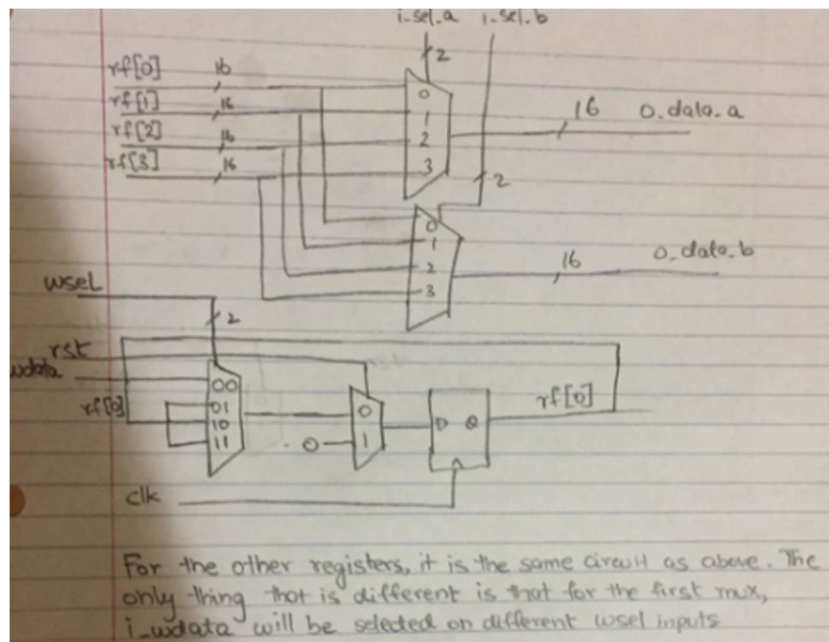 i-sel-a i-sel-b
2
rf[0] 16
rf[1] 16
rf[2] 16
rf[3] 16
0
1
2
3
16 o.data.a
2
0
1
2
3
16 o_data_b
wsel
2
rst
wdata
rf[0]
00
01
10
11
0
0 1
D Q
rf[0]
clk
For the other registers, it is the same circuit as above. The
only thing that is different is that for the first mux,
i_wdata will be selected on different wsel inputs